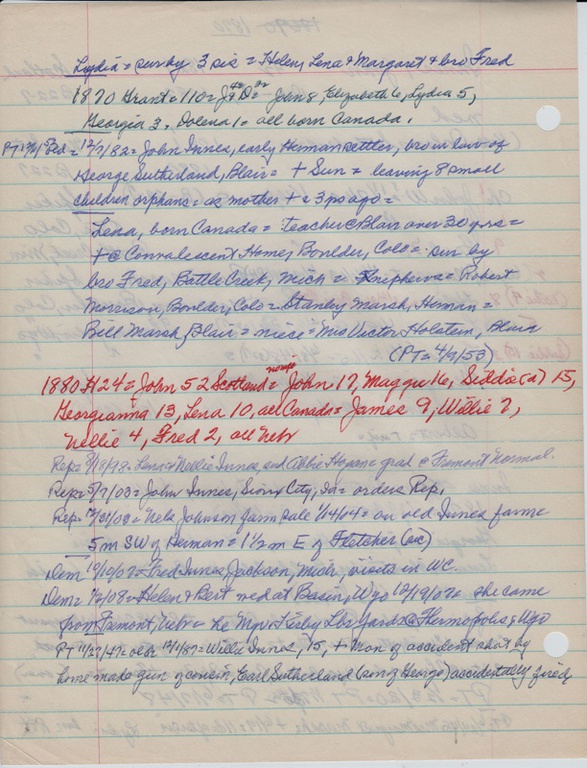 Lydia = surv by 3 sis = Helen, Lena & Margaret & bro Fred
1870 Grant = 110 = J 42 D 32 John 8, Elizabeth 6, Lydia 5,
Georgia 3, Dolena 1 = all born Canada.
12/7/82 = John Innes, early Herman settler, bro in law of
George Sutherland, Blair = + Sun = leaving 8 small
children orphans = as mother + @ 3 yrs ago =
Lena, born Canada = teacher @ Blair over 30 yrs =
+ @ Convalescent Home, Boulder, Colo = sur by
bro Fred, Battle Creek, Mich = Knephews = Robert
Morrison, Boulder, Colo = Stanley Marsh, Herman =
Bell Marsh, Blair = niece = Mrs Victor Holstein, Blair
(PT = 4/9/53)
1880 H 24 = John 52 Scotland = John 17, Maggie 16, Siddie(a) 15,
Georgianna 13, Lena 10, all Canada = James 9, Willie 7,
Nellie 4, Fred 2, all Nebr
Lena & Nellie Innes, and Abbie Hogan = grad @ Fremont Normal.
Rep = 5/7/03 = John Innes, Sioux City, Ia = orders Rep.
Rep. = Nels Johnson farm sale 1/14/04 = on old Innes farm =
5 m SW of Herman = 1 1/2 m E of Fletcher (sic)
Dem 10/10/07 = Fred Innes, Jackson, Mich, visits in WC.
Dem = Helen & Bert md at Basin, Wyo 12/19/07 = she came
from Fremont, Nebr = he Mgr Lbr Yards @ Thermopolis, Wyo
PT 11/27/47 = Willie Innes, 15, + Mon of accident shot by
home made gun of cousin, Earl Sutherland (son of George) accidentally fired,